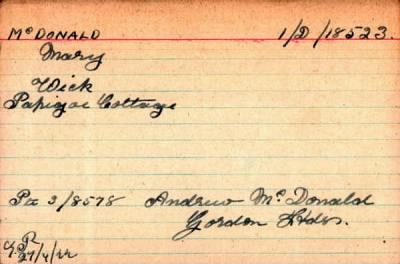 McDONALD 1/D/18523.
Mary
Wick
Papigoe Cottage
Pte 3/8578 Andrew McDonald
Gordon Hdrs.
27/4/22